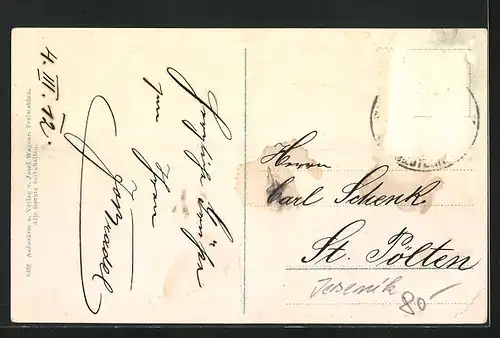 4. III. 12.
Herzliche Grüße
von Ihrem
Aufnahme u. Verlag v. Josef Wagner, Freiwaldau.
Alle Rechte vorbehalten.
Herrn
Carl Schenk
St. Pölten
Jesenik
80-